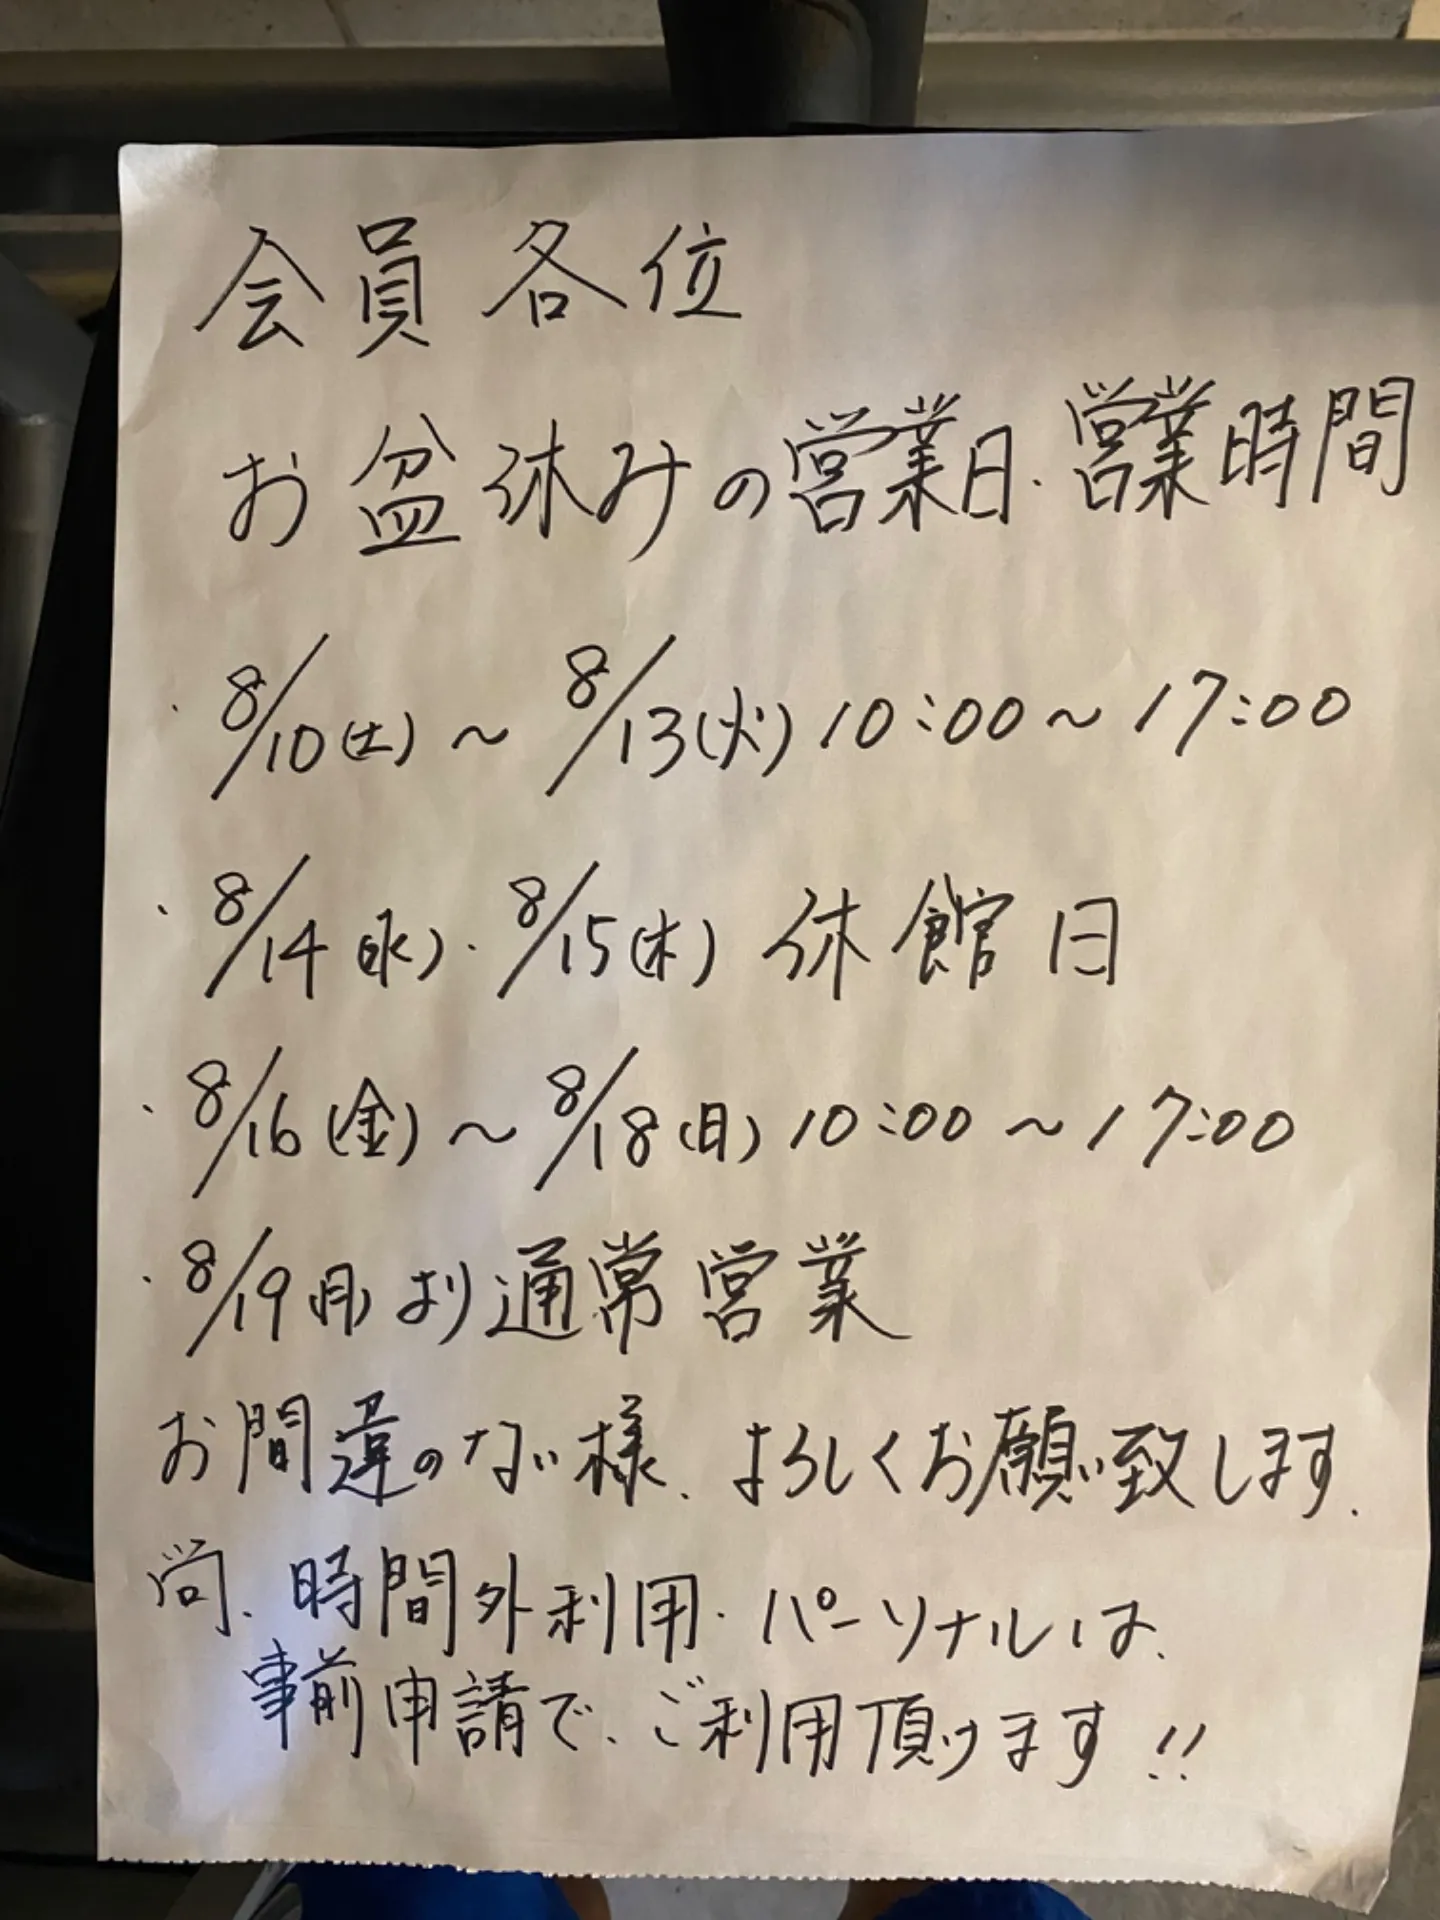 会員各位
お盆休みの営業日・営業時間
・8/10(土)～8/13(火)10:00～17:00
・8/14(水)・8/15(木)休館日
・8/16(金)～8/18(日)10:00～17:00
・8/19(月)より通常営業
お間違のない様、よろしくお願い致します。
尚、時間外利用・パーソナルは、
事前申請で、ご利用頂けます!!